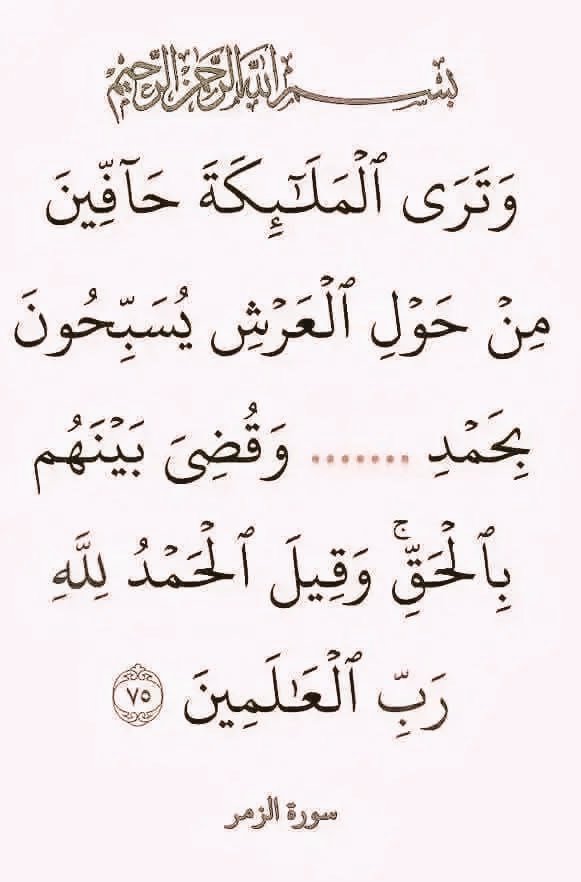 بِسْمِ اللَّهِ الرَّحْمَٰنِ الرَّحِيمِ
وَتَرَى ٱلْمَلَـٰٓئِكَةَ حَآفِّينَ
مِنْ حَوْلِ ٱلْعَرْشِ يُسَبِّحُونَ
بِحَمْدِ ....... وَقُضِىَ بَيْنَهُم
بِٱلْحَقِّ ۚ وَقِيلَ ٱلْحَمْدُ لِلَّهِ
رَبِّ ٱلْعَـٰلَمِينَ ٧٥
سورة الزمر